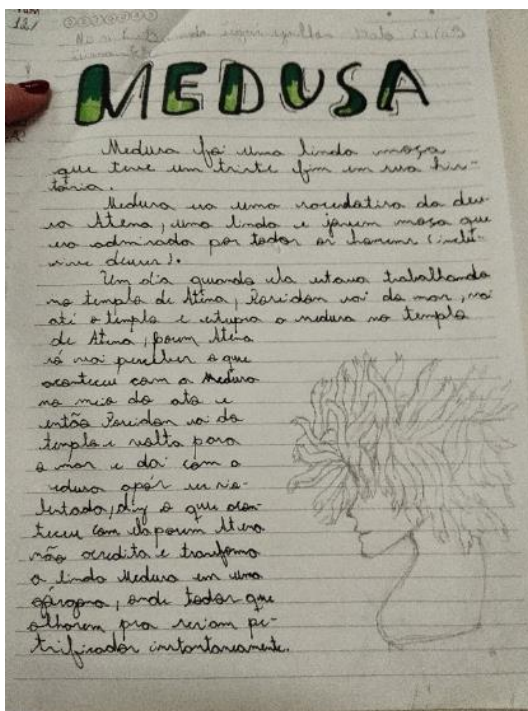 121
MEDUSA
Medusa foi uma linda moça
que teve um triste fim em sua his-
tória.
Medusa era uma sacerdotisa da deu-
sa Atena, uma linda e jovem moça que
era admirada por todos os homens (inclu-
sive deuses).
Um dia quando ela estava trabalhando
no templo de Atena, Poseidon sai do mar, vai
até o templo e estupra a medusa no templo
de Atena, porem Atena
só vai perceber o que
aconteceu com a Medusa
no meio do ato e
então Poseidon sai do
templo e volta para
o mar e dai com a
edusa após ser vio-
lentada, diz o que acon-
teceu com ela porem Atena
não acredita e transforma
a linda Medusa em uma
górgona, onde todos que
olhorem pra seriam pe-
trificados instantaneamente.